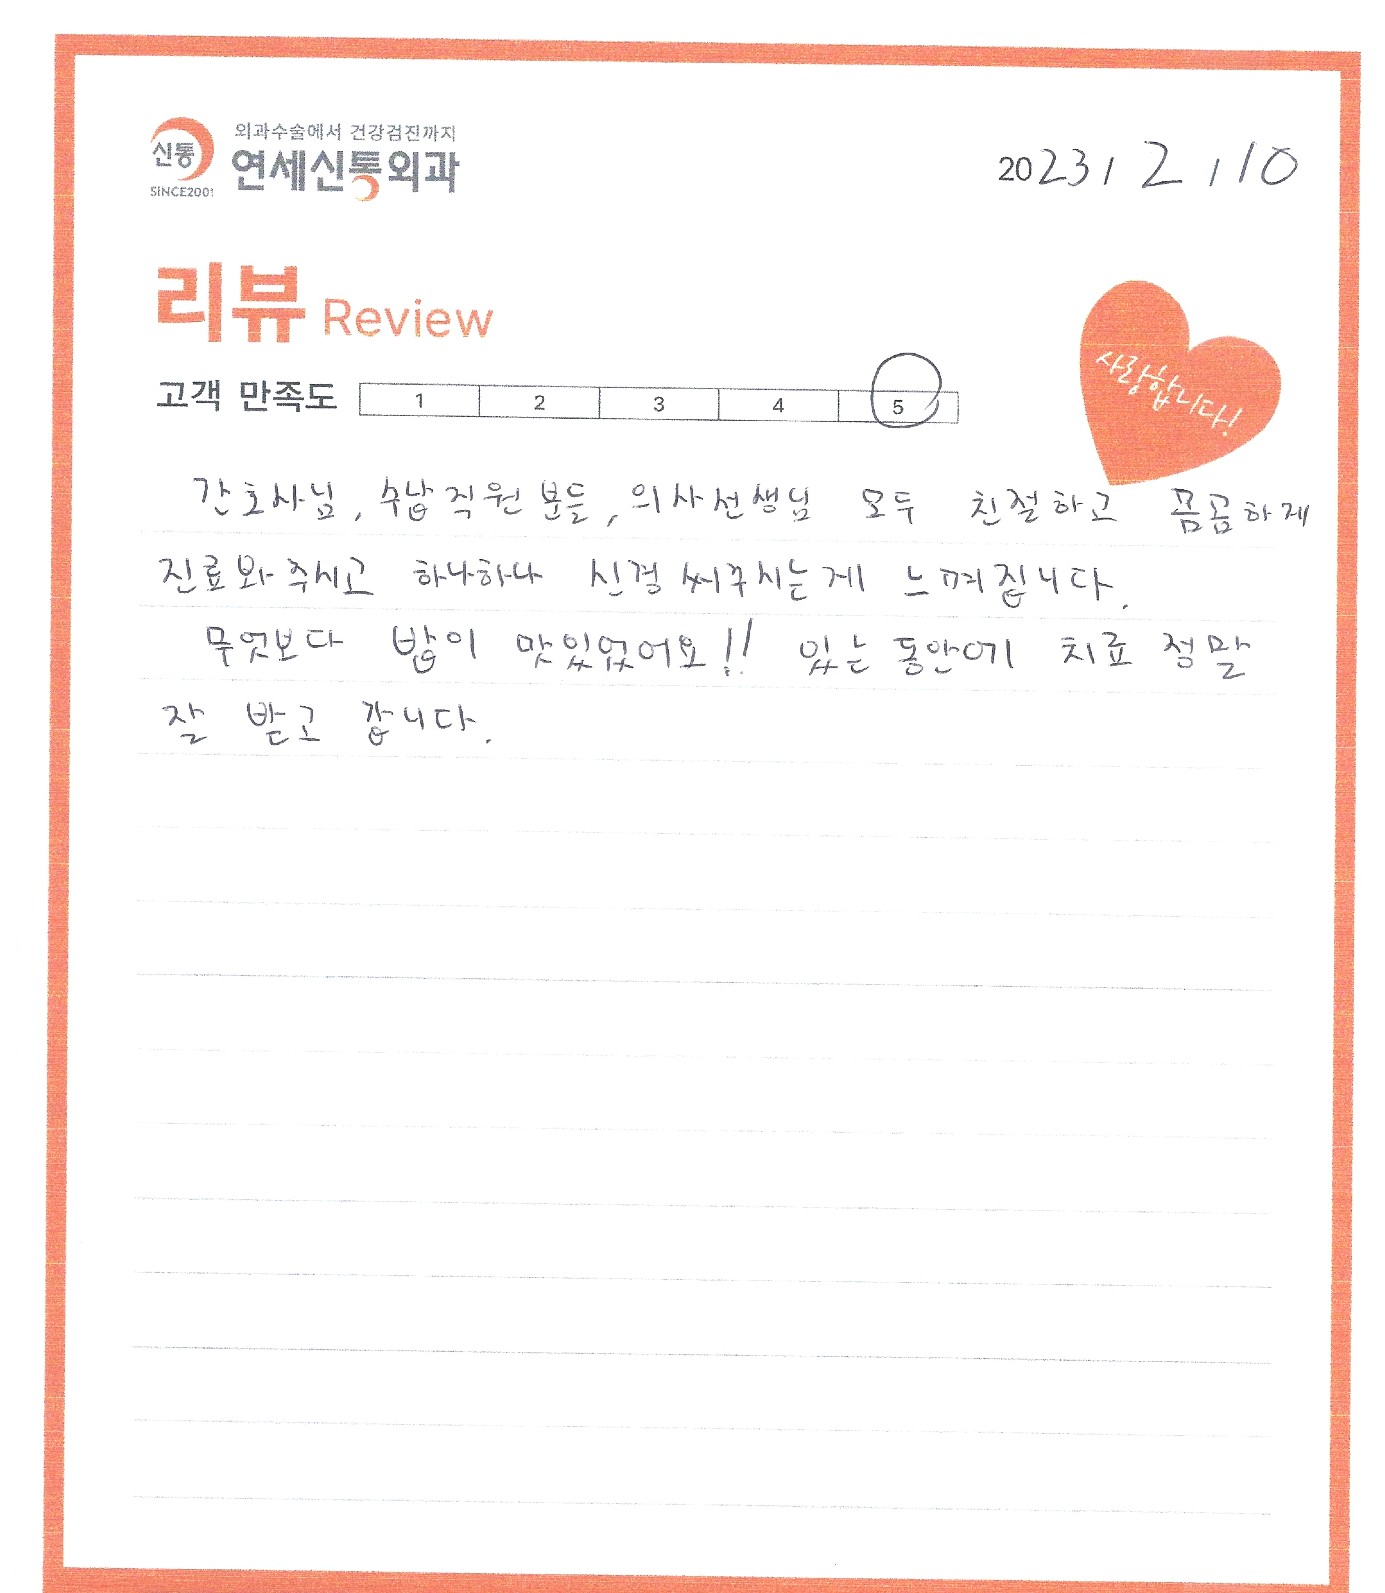 외과수술에서 건강검진까지
신통
연세신통외과
SINCE2001
2023, 2, 10
리뷰 Review
고객 만족도 1 2 3 4 5
사랑합니다!
간호사님, 수납직원분들, 의사선생님 모두 친절하고 꼼꼼하게
진료봐주시고 하나하나 신경써주시는게 느껴집니다.
무엇보다 밥이 맛있었어요!! 있는 동안에 치료 정말
잘 받고 갑니다.